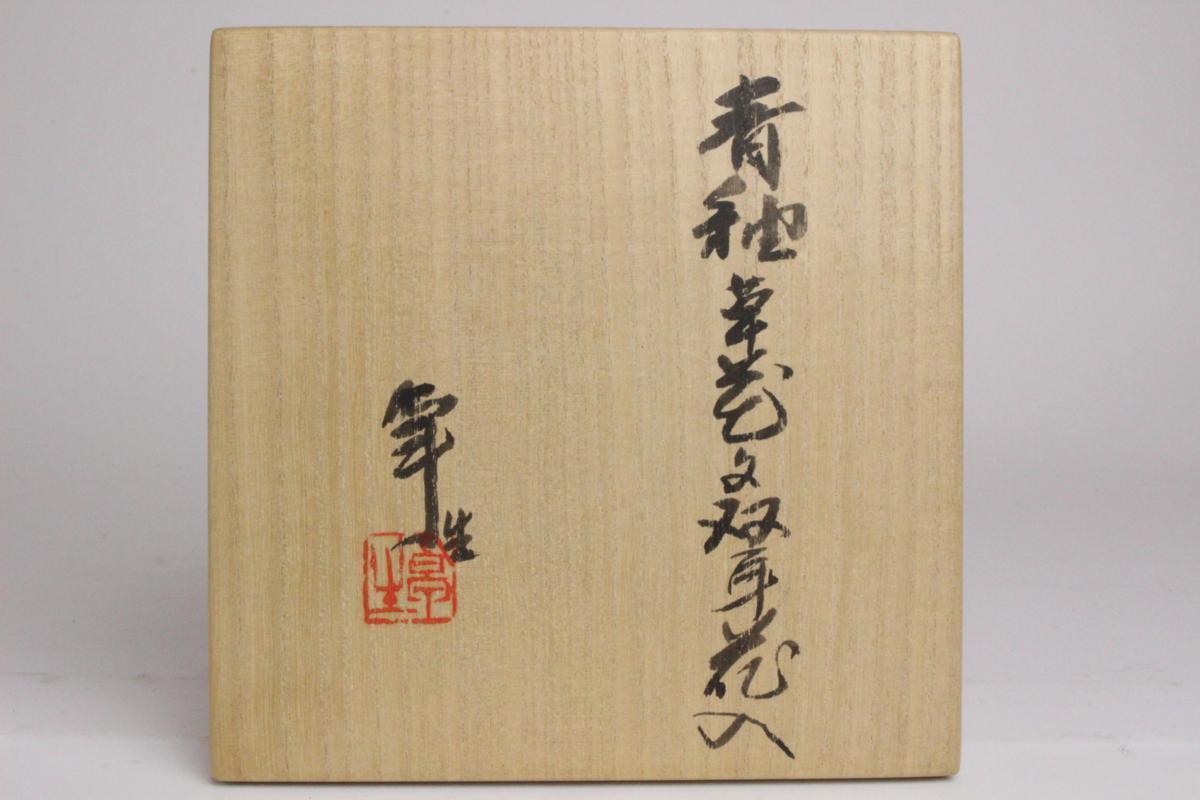 青釉草花文双耳花入